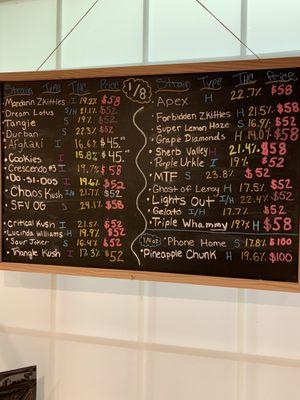 Strain Type THC Price
Mandarin Zkittles I 19.2% $58
Dream Lotus S/H 21.1% $52
Tangie S 19% $52
Durban S 22.3% $52
Afghaki I 16.6% $45
Cookies I 15.8% $45
Crescendo #3 I 19.7% $58
Do-Si-Dos I 19.6% $52
Chaos Kush I/H 21.7% $52
SFV OG S 24.1% $58
Critical Kush I 21.5% $52
Lucinda Williams H 19.9% $52
Sour Joker S 16.4% $52
Triangle Kush I 17.3% $52
1/8
Strain Type THC Price
Apex H 22.7% $58
Forbidden Zkittles H 21.5% $58
Super Lemon Haze S 16.9% $52
Grape Diamonds H 19.0% $58
Sherb Valley H 21.4% $58
Purple Urkle I 19% $52
MTF S 23.8% $52
Ghost of Leroy H 17.5% $52
Lights Out I/H 22.4% $52
Gelato I/H 17.7% $52
Triple Whammy 19% H $58
1/4oz Phone Home S 17.8% $100
Pineapple Chunk H 19.6% $100